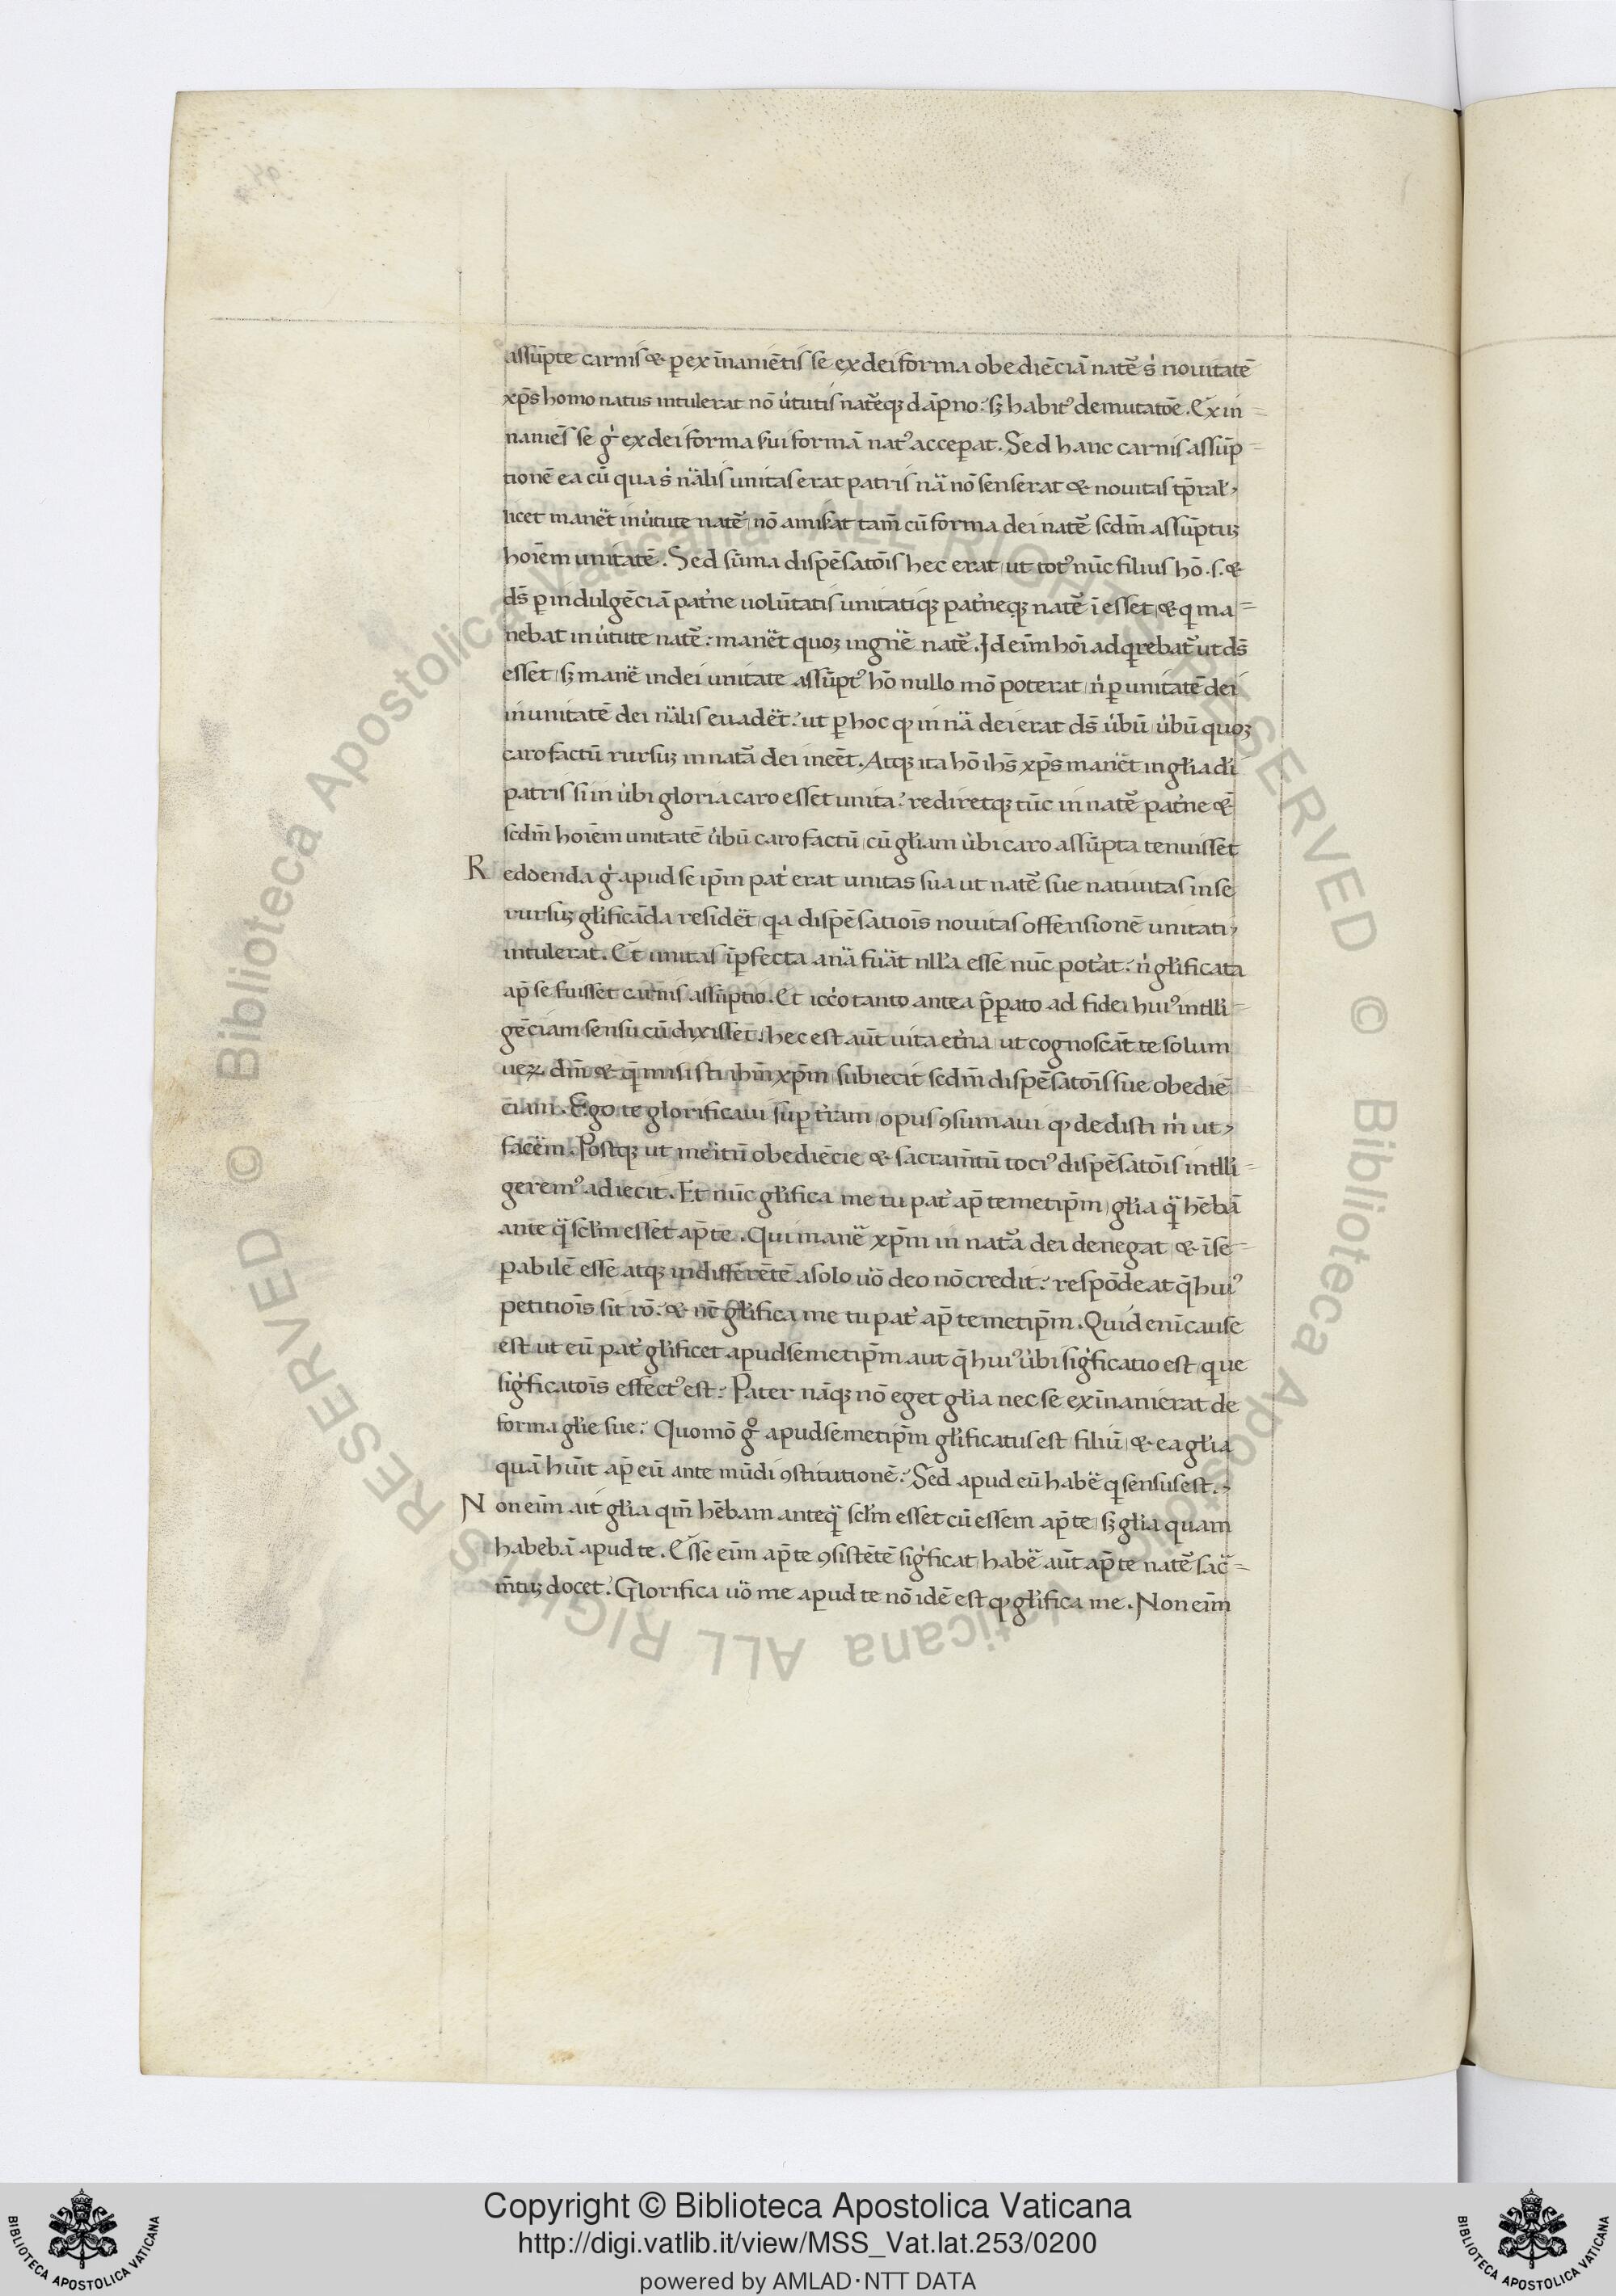 assūpte carnis & ꝑ exīnaniētis se ex dei forma obediēciā natē s' nouitatē
xp̄s homo natus intulerat nō u'tutis nat'eqꝫ dāpno: sꝫ habitꝰ demutatōe. Ex in=
nanies̄ se g' ex dei forma sui formā natꝰ acceꝑat. Sed hanc carnis assūp=
tionē ea cū qua s' nālis unitas erat patris nā nō senserat & nouitas tp̄ral'
licet manēt in u'tute natē nō amiserat tam̄ cū forma dei natē scdm̄ assūptuꝫ
hoīem unitatē. Sed sūma dispēsatōis hec erat ut totꝰ nūc filius hō .s. &
ds̄ ꝑ indulgēciā pat'ne uolūtatis unitati qꝫ pat'neqꝫ natē ī esset & q ma=
nebat in u'tute natē: manēt quoqꝫ in gn̄e natē. Id eīm hoī adqrebatᷣ ut ds̄
esset sꝫ manē in dei unitate assūptꝰ hō nullo mō poterat n' ꝑ unitatē dei
in unitatē dei nālis euadēt: ut ꝑ hoc qꝫ in nā dei erat ds̄ u'bū u'bū quoqꝫ
caro factū rursuꝫ in natā dei ineēt. Atqꝫ ita hō ihs̄ xp̄s manēt in gl'ia di
patris si in u'bi gloria caro esset unita: rediretqꝫ tūc in natē pat'ne &
scdm̄ hoīem unitatē u'bū caro factū cū gl'iam u'bi caro assūpta tenuisset
Reddenda g' apud se ip̄m pat' erat unitas sua ut natē sue natiuitas in se
rursuꝫ gl'ificāda residēt qa dispēsatiōis nouitas offensionē unitati
intulerat. Et unitas īꝑfecta anā fuāt nll'a esse nūc pot'at n' gl'ificata
ap̄ se fuisset carnis assūptio. Et icc'o tanto antea p̄ꝑato ad fidei huiꝰ intlli=
gēciam sensu cū dixisset hec est aūt uita et'na ut cognoscāt te solum
ueꝝ dm̄ & qm̄ misisti ihm̄ xp̄m subiecit scdm̄ dispēsatōis sue obediē
ciam. Ego te glorificaui suꝑ t'ram opus ꝯsumaui qꝫ dedisti m' ut
facēm. Postqꝫ ut meritū obediēcie & sacram̄tū tociꝰ dispēsatōis intlli=
geremꝰ adiecit. Et nūc gl'ifica me tu pat' ap̄ temetip̄m gl'ia q̄ hēbā
ante q̄ scl'm esset ap̄ te. Qui manē xp̄m in natā dei denegat & īse=
ꝑabilē esse atqꝫ indifferētē a solo u'o deo nō credit: respōdeat q̄ huiꝰ
petitiōis sit rō: & nc̄ gl'ifica me tu pat' ap̄ temetip̄m. Quid enī cause
est ut eū pat' gl'ificet apud semetip̄m aut q̄ huiꝰ u'bi sig'ficatio est que
sig'ficatōis effectꝰ est: Pater nāqꝫ nō eget gl'ia nec se exīnanierat de
forma gl'ie sue: Quomō gº apud semetip̄m gl'ificatus est filiū & ea gl'ia
quā hūit ap̄ eū ante mūdi ꝯstitutionē: Sed apud eū habē q sensus est.
Non eīm ait gl'ia qm̄ hēbam anteq̄ scl'm esset cū essem ap̄ te sꝫ gl'ia quam
habebā apud te. Esse eīm ap̄ te ꝯsistētē sig'ficat habē aūt ap̄ te natē sac=
m̄tuꝫ docet. Glorifica u'o me apud te nō idē est qꝫ gl'ifica me. Non eīm
Copyright © Biblioteca Apostolica Vaticana
http://digi.vatlib.it/view/MSS_Vat.lat.253/0200
powered by AMLAD·NTT DATA